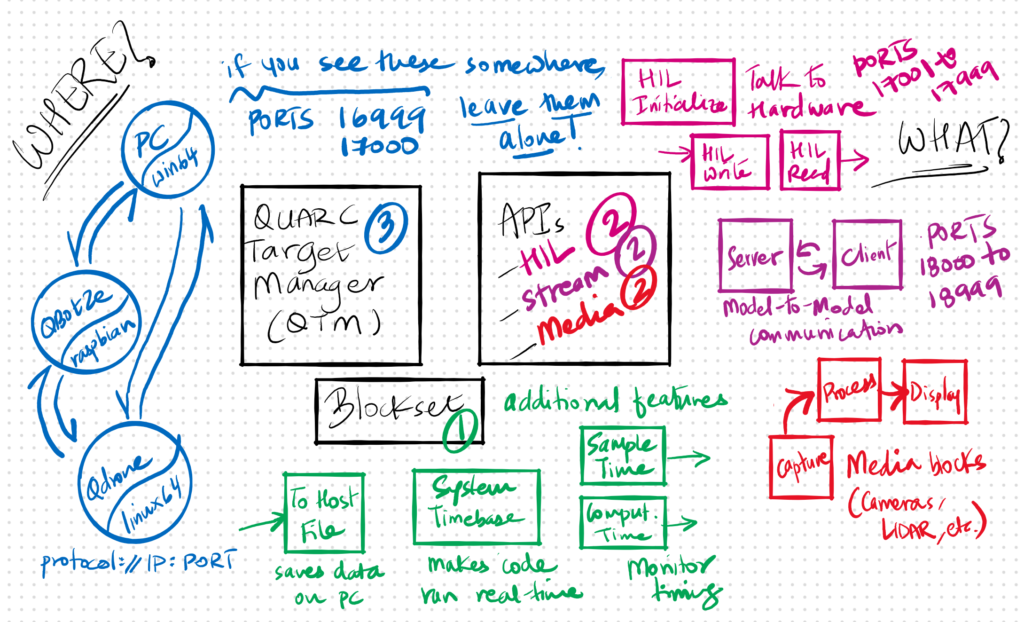 WHERE?
PC
win64
QBot2e
raspbian
Qdrone
linux64
protocol://IP:PORT
if you see these somewhere,
leave them
alone!
PORTS 16999
17000
HIL
Initialize
Talk to
Hardware
PORTS
17001 to
17999
HIL
Write
HIL
Read
WHAT?
QUARC
Target
Manager
(QTM)
3
APIs
HIL 2
stream 2
Media 2
Server
Client
Model-to-Model
communication
PORTS
18000 to
18999
Blockset
1
additional features
To Host
File
saves data
on PC
System
Timebase
makes code
run real-time
Sample
Time
Comput.
Time
Monitor
timing
Capture
Process
Display
Media blocks
(Cameras,
LIDAR, etc.)